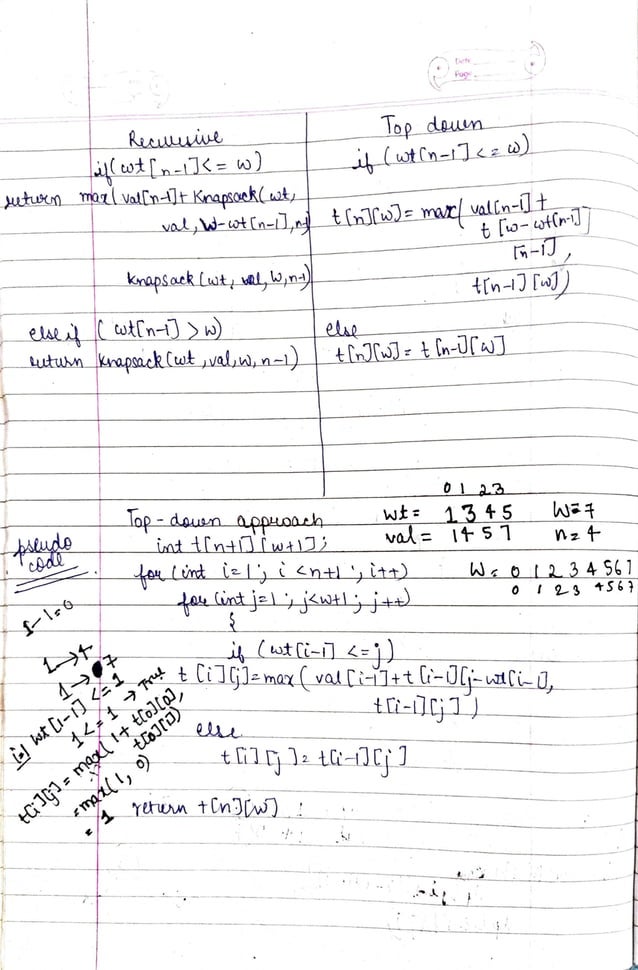 Date
Page
Recursive
if (wt[n-1] <= w)
return max(val[n-1] + Knapsack(wt,
val, W-wt[n-1], n-1)
Knapsack (wt, val, W, n-1)
else if ( wt[n-1] > w)
return Knapsack(wt, val, w, n-1)
Top down
if (wt[n-1] <= w)
t[n][w] = max( val[n-1] +
t [w-wt[n-1]]
[n-1],
t[n-1][w])
else
t[n][w] = t[n-1][w]
0 1 2 3
wt = 1 3 4 5 W=7
val = 1 4 5 7 n=4
W = 0 1 2 3 4 5 6 7
0 1 2 3 4 5 6 7
pseudo
code
Top-down approach
int t[n+1][w+1];
for (int i=1; i<n+1; i++)
for (int j=1; j<w+1; j++)
{
if (wt[i-1] <= j)
t[i][j] = max( val[i-1] + t[i-1][j-wt[i-1],
t[i-1][j])
else
t[i][j] = t[i-1][j]
return t[n][w]
1-1=0
1→4
1→7
wt[1-1] <= 1
1 <= 1 → True
t[i][j] = max(1 + t[0][0],
t[0][1])
= max(1, 0)
= 1